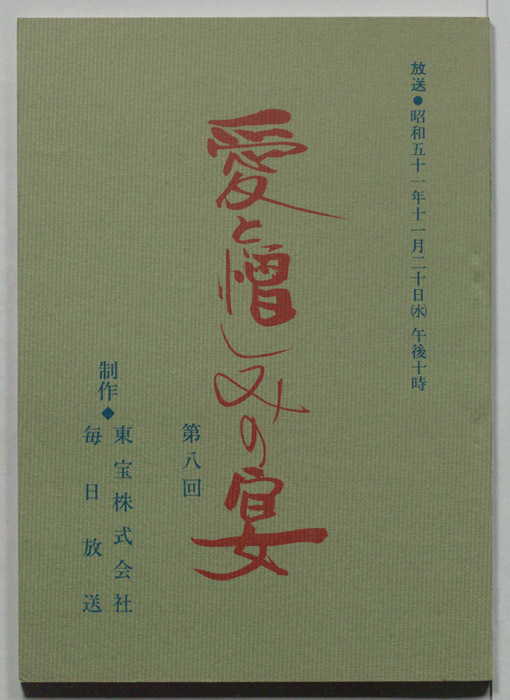 放送●昭和五十一年十一月二十日㈬ 午後十時
愛と憎しみの宴
第八回
制作◆東宝株式会社
毎日放送